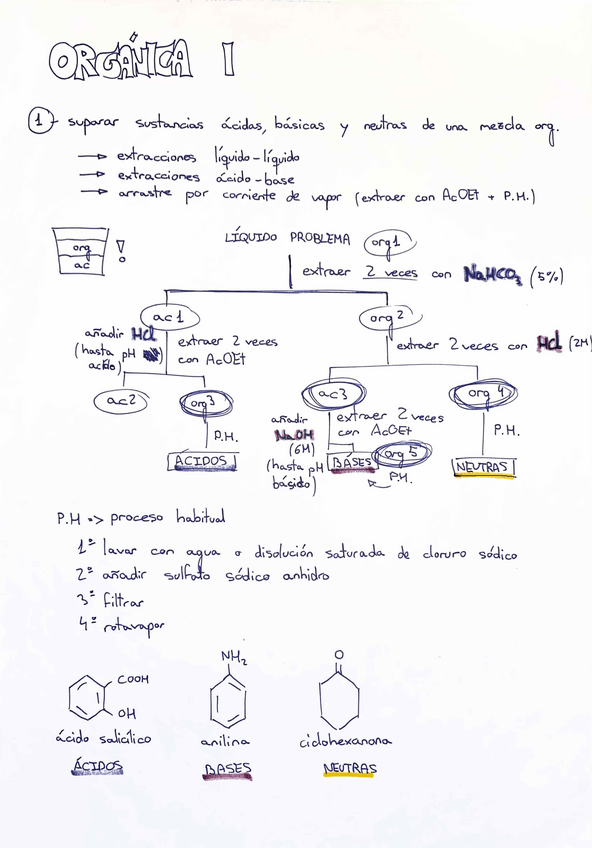 ORGÁNICA I
1 - suparar sustancias ácidas, básicas y neutras de una mezcla org.
→ extracciones líquido-líquido
→ extracciones ácido-base
→ arrastre por corriente de vapor (extraer con AcOEt + P.H.)
org
ac
!
LÍQUIDO PROBLEMA org1
extraer 2 veces con NaHCO₃ (5%)
ac 1
org 2
añadir Hcl
(hasta pH
acído)
extraer 2 veces
con AcOEt
extraer 2 veces con Hcl (2M)
ac2
org3
ac3
org 4
P.H.
ÁCIDOS
añadir
NaOH
(6M)
(hasta pH
básico)
extraer 2 veces
con AcOEt
BÁSES
org 5
P.H.
P.H.
NEUTRAS
P.H => proceso habitual
1º lavar con agua o disolución saturada de cloruro sódico
2º añadir sulfato sódico anhidro
3º filtrar
4º rotavapor
COOH
OH
NH₂
O
ácido salicílico
anilina
ciclohexanona
ÁCIDOS
BASES
NEUTRAS